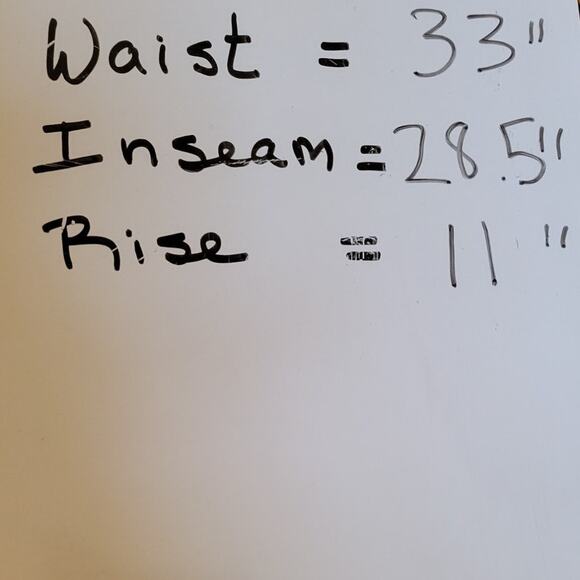 Waist = 33"
Inseam = 28.5"
Rise = 11"